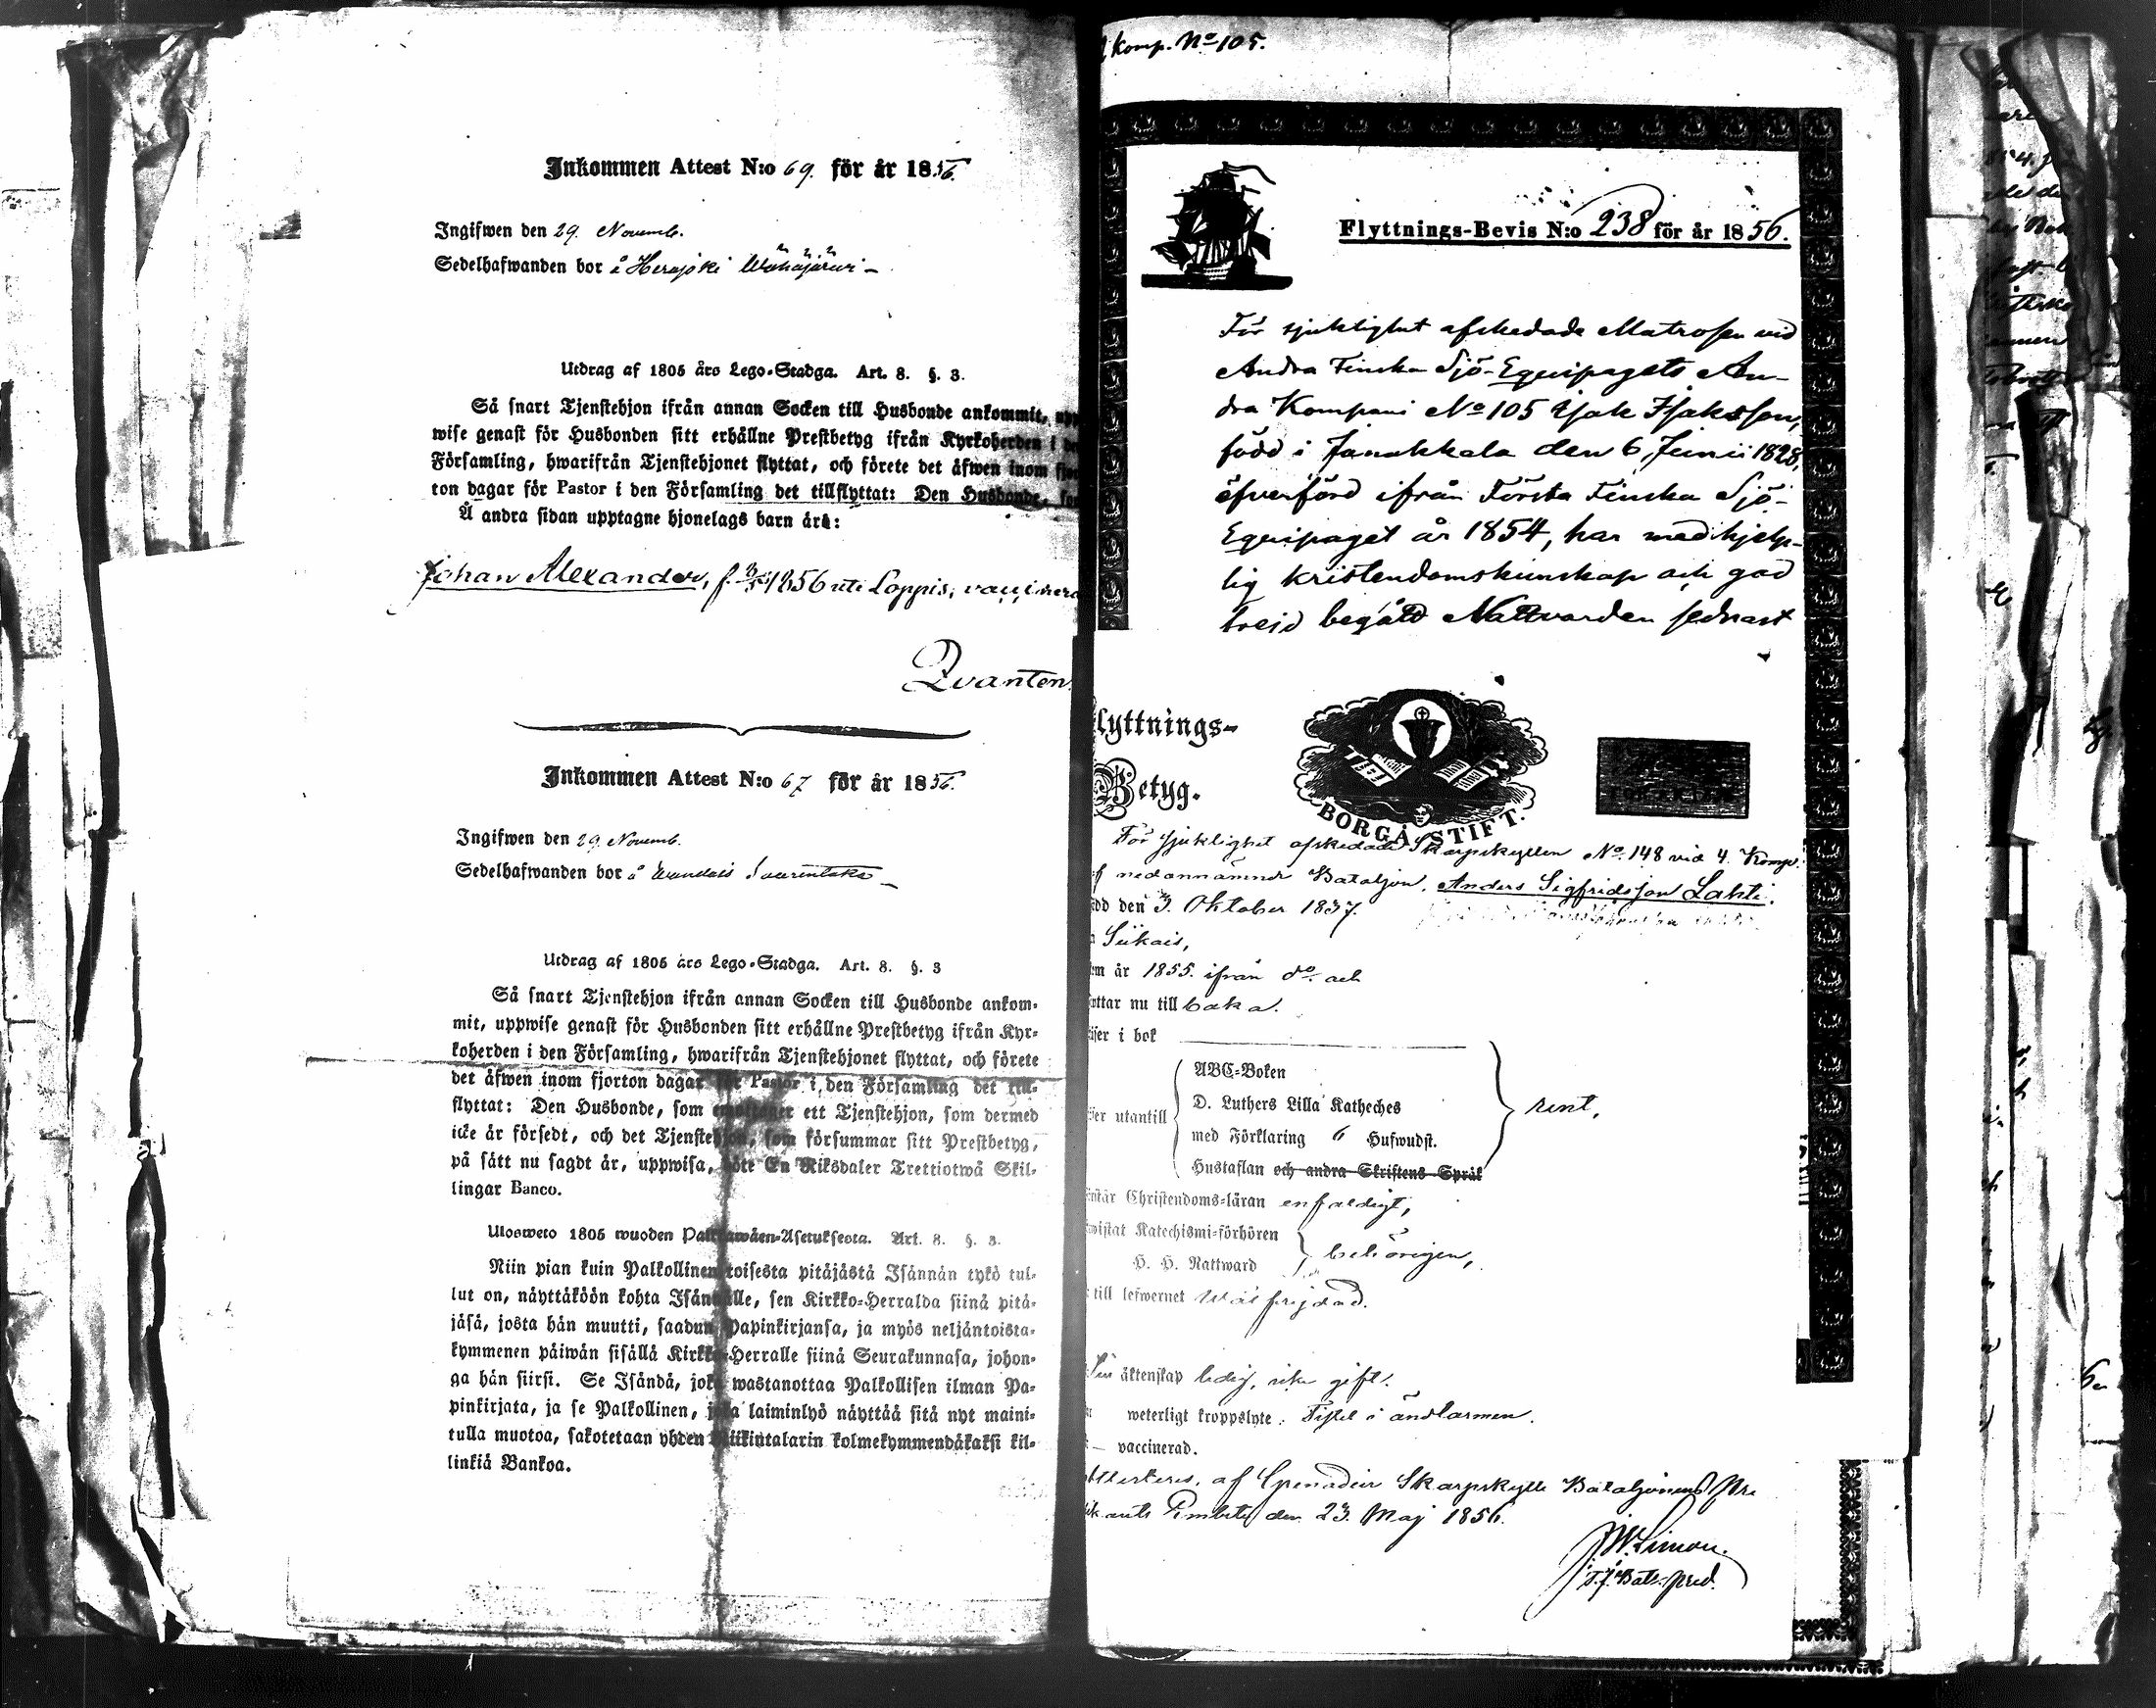 Inkommen Attest N:o 69. för år 1856.
Ingifwen den 29. Novemb.
Sedelhafwanden bor å Herajoki Wähäjärwi –
Utdrag af 1805 års Lego-Stadga. Art. 8. §. 3.
Så snart Tjenstehjon ifrån annan Socken till Husbonde ankommit, upp
wise genast för Husbonden sitt erhållne Prestbetyg ifrån Kyrkoherden i de
Församling, hwarifrån Tjenstehjonet flyttat, och förete det äfwen inom fjor
ton dagar för Pastor i den Församling det tillflyttat: Den Husbonde,
Å andra sidan upptagne hjonelags barn äro:
Johan Alexander, f. 1856 uti Loppis, vaccinera
Qvanten
Inkommen Attest N:o 67 för år 1856.
Ingifwen den 29. Novemb.
Sedelhafwanden bor å
Utdrag af 1805 års Lego-Stadga. Art. 8. §. 3
Så snart Tjenstehjon ifrån annan Socken till Husbonde ankom-
mit, uppwise genast för Husbonden sitt erhållne Prestbetyg ifrån Kyr-
koherden i den Församling, hwarifrån Tjenstehjonet flyttat, och förete
det äfwen inom fjorton dagar för Pastor i den Församling det till-
flyttat: Den Husbonde, som emottager ett Tjenstehjon, som dermed
icke är försedt, och det Tjenstehjon, som försummar sitt Prestbetyg,
på sätt nu sagdt är, uppwisa, böte En Riksdaler Trettiotwå Skil-
lingar Banco.
Ulosweto 1805 wuoden Palkkawäen-Asetuksesta. Art. 8. §. 3.
Niin pian kuin Palkollinen toisesta pitäjästä Isännän tykö tul-
lut on, näyttäköön kohta Isännälle, sen Kirkko-Herralda siinä pitä-
jäsä, josta hän muutti, saadun Papinkirjansa, ja myös neljäntoista-
kymmenen päiwän sisällä Kirkko-Herralle siinä Seurakunnasa, johon-
ga hän siirsi. Se Isändä, joka wastanottaa Palkollisen ilman Pa-
pinkirjata, ja se Palkollinen, joka laiminlyö näyttää sitä nyt maini-
tulla muotoa, sakotetaan yhden Riikintalarin kolmekymmendäkaksi kil-
linkiä Bankoa.
komp. No 105.
Flyttnings-Bevis N:o 238 för år 1856.
För sjuklighet afskedade Matrosen vid
Andra Finska Sjö-Equipagets An-
dra Kompani No 105 Isak Isaksson,
född i Janakkala den 6 Junii 1828,
öfverförd ifrån Första Finska Sjö-
Equipaget år 1854, har med hjelp-
lig kristendomskunskap och god
frejd begått Nattvarden sednast
lyttnings-
Betyg.
BORGÅ STIFT.
För sjuklighet afskedade Skarpskytten No. 148 vid 4. Komp.
af nedannämnde Bataljon, Anders Sigfridsson Lahti,
ödd den 3. Oktober 1837.
Siikais,
om år 1855. ifrån do. och
yttar nu till baka.
äser i bok
ser utantill
ABC-Boken
D. Luthers Lilla Katheches
med Förklaring 6 Hufwudst.
Hustaflan och andra Skriftens Språk
rent,
rstår Christendoms-läran enfaldigt,
wistat Katechismi-förhören
H. H. Nattward
behörigen,
till lefwernet wälfrejdad.
äktenskap ledig, icke gift.
weterligt kroppslyte: Fistel i ändtarmen.
– vaccinerad.
Attesteres, af Grenadier Skarpskytte Bataljonens Pre
dikants Embete den 23. Maj 1856.